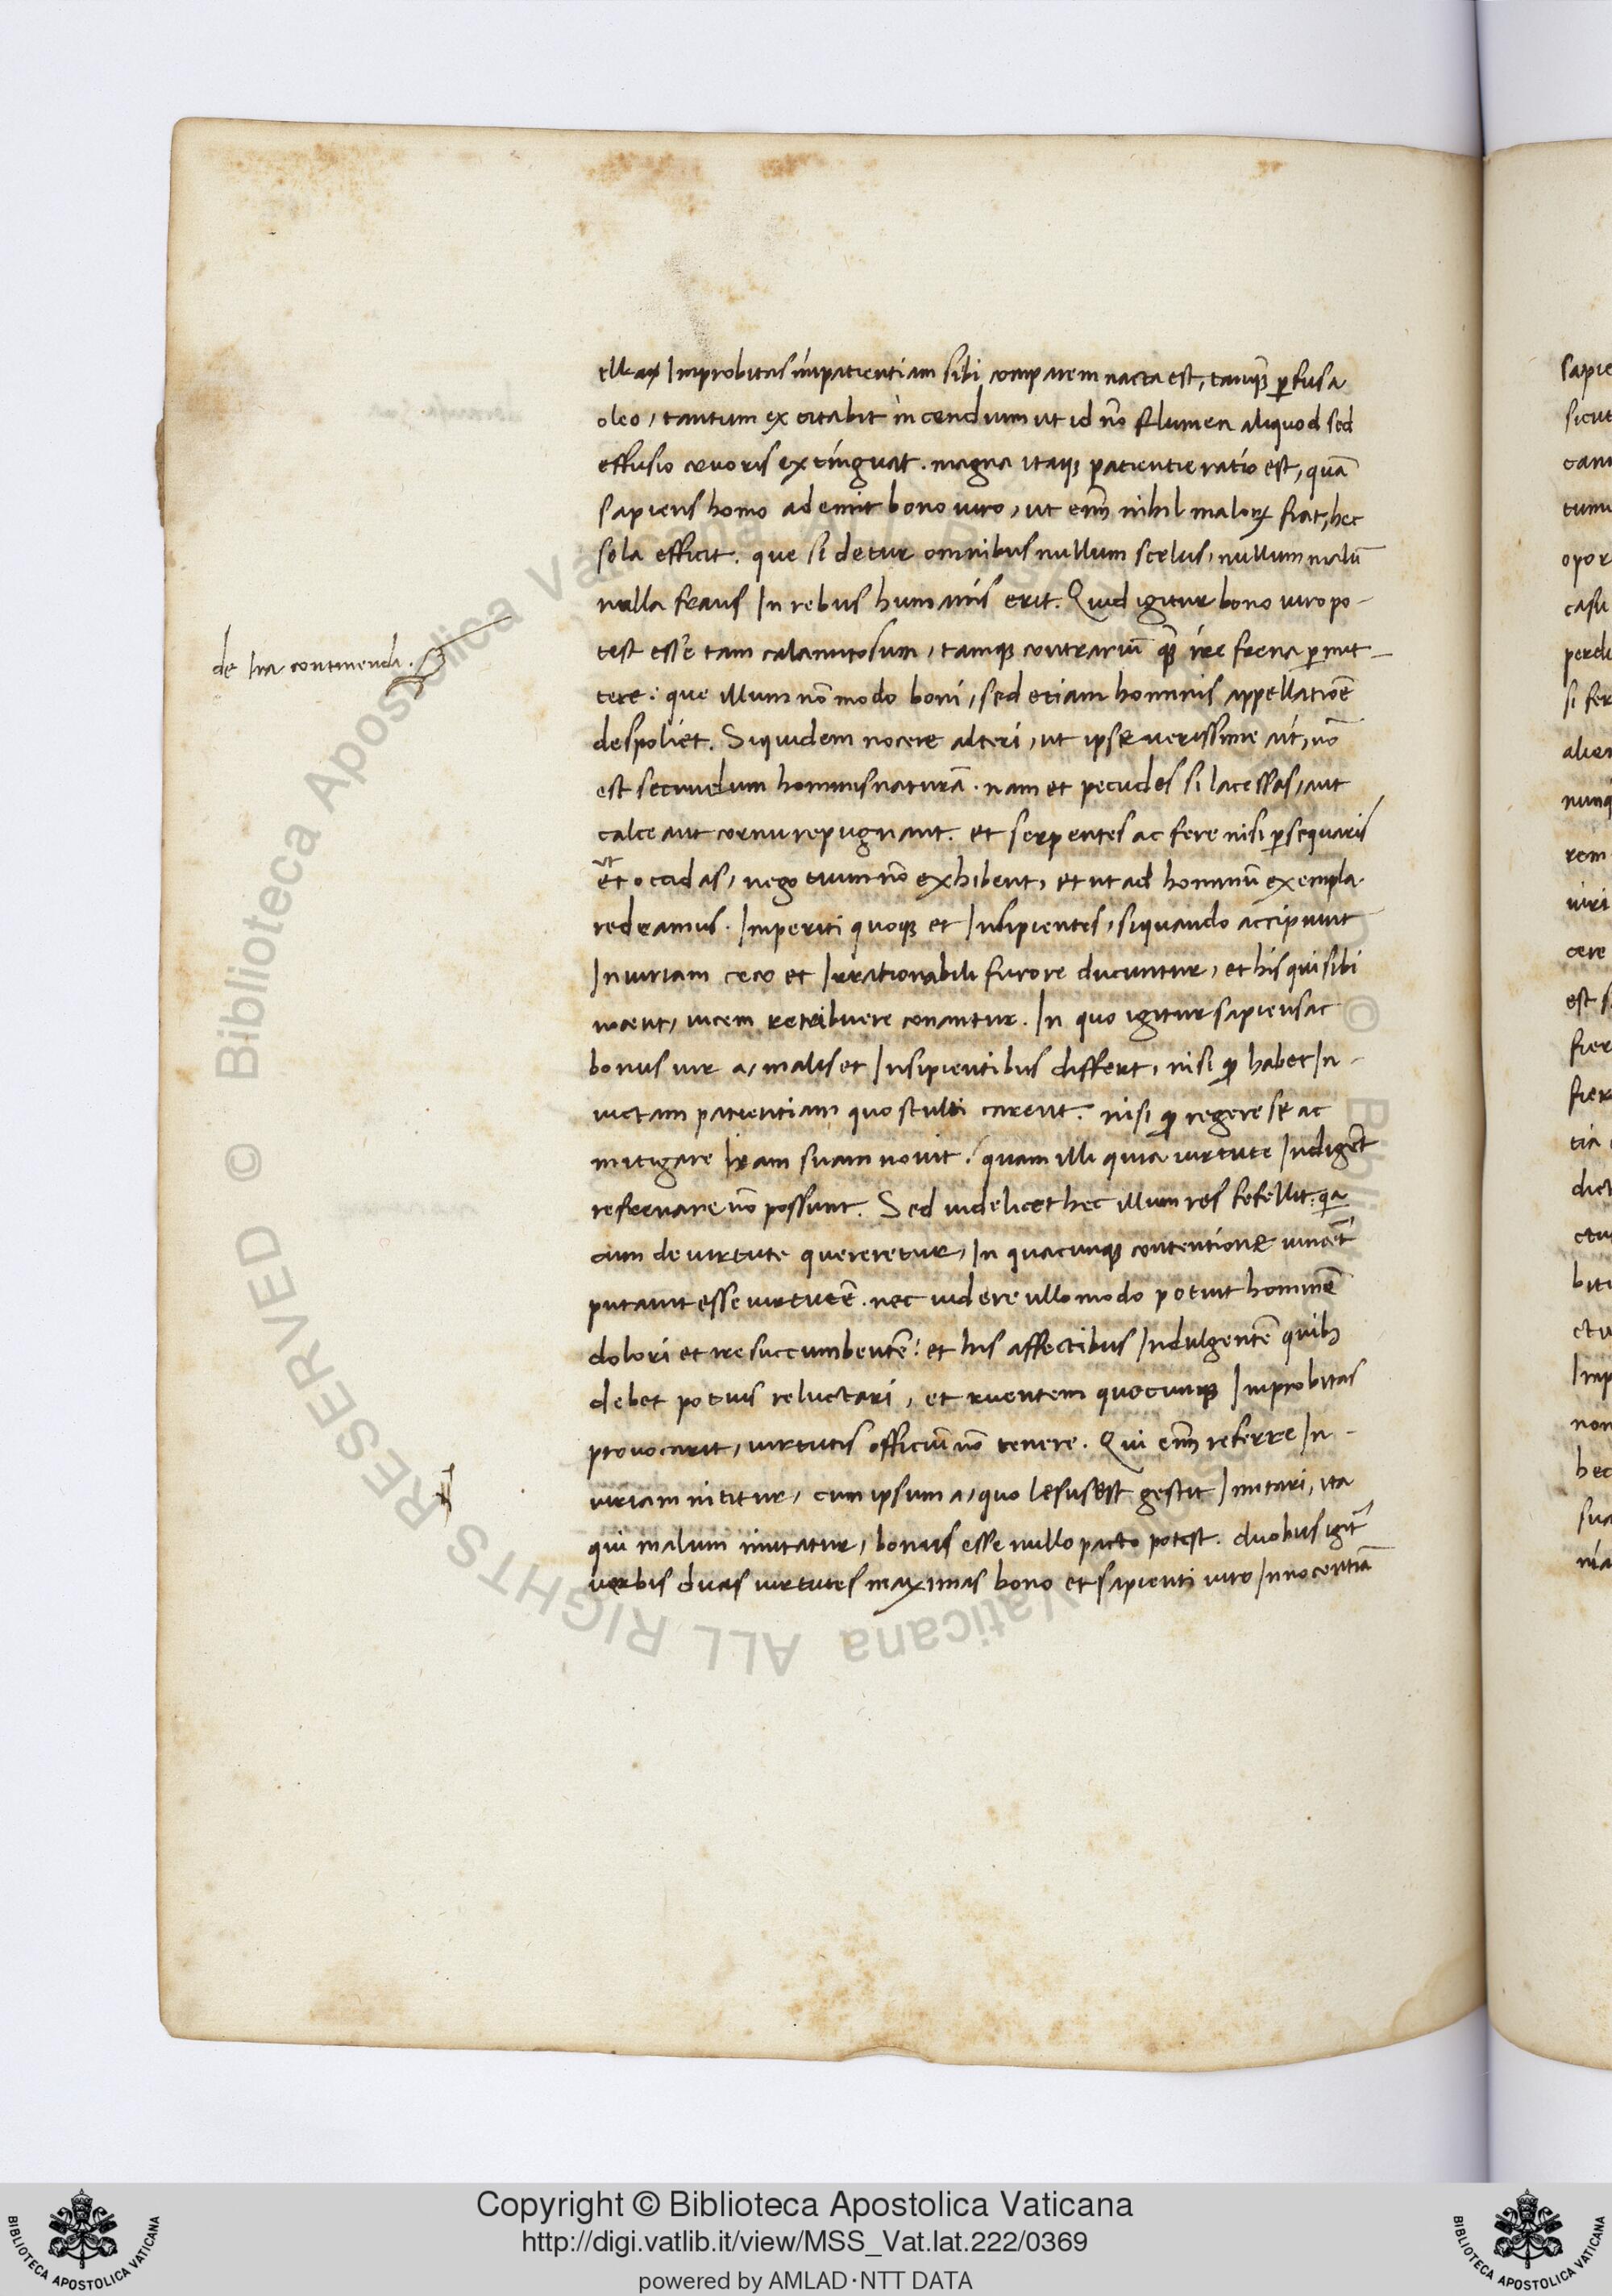 ellaꝫ Improbitas impatientiam sibi comparem nacta est, tanqꝫ ꝑfusa
oleo, tantum excitabit incendium ut id nō flumen aliquod sed
effusio cruoris extinguat. magna itaqꝫ patientie ratio est, quā
sapiens homo ademit bono uiro, ut eni͂ nihil maloꝝ fiat, hec
sola efficit. que si detur omnibus nullum scelus, nullum malū
nulla fraus In rebus humanis erit. Quid igitur bono uiro po-
test esse tam calamitosum, tamqꝫ contrariū qꝫ ire frena ꝑmit-
de Ira continenda.
tere: que illum nō modo boni, sed etiam hominis appellatiōe
despoliet. Siquidem nocere alteri, ut ipse uerissime ait, nō
est secundum hominis naturā. nam et pecudes si lacessas, aut
calce aut cornu repugnant. et serpentes ac fere nisi ꝑsequaris
ut
et occidas, negotium nō exhibent, et ut ad hominū exempla
redeamus. Imperiti quoqꝫ et Insipientes, siquando accipiunt
Iniuriam ceco et Irrationabili furore ducuntur, et his qui sibi
nocent, uicem retribuere conantur. In quo igitur sapiens ac
bonus uir a, malis et Insipientibus differt, nisi ꝙ habet In-
uictam patientiam quo stulti carent. nisi ꝙ regere se ac
mitigare Iram suam nouit. quam illi quia uirtute Indigēt
refrenare nō possunt. Sed uidelicet hec illum res fefellit. qa
cum de uirtute quereretur, In quacunqꝫ contentione uincēt
putauit esse uirtutē. nec uidere ullo modo potuit hominē
dolori et ire succumbentē: et his affectibus Indulgentē quibꝫ
debet potius reluctari, et ruentem quocunqꝫ Improbitas
prouocarit, uirtutis officiū nō tenere. Qui eni͂ referre In-
iuriam nititur, eum ipsum a, quo lesus est gestit Imitari, ita
qui malum imitatur, bonus esse nullo pacto potest. duobus igit̄
uerbis duas uirtutes maximas bono et sapienti uiro Innocentiā
Copyright © Biblioteca Apostolica Vaticana
http://digi.vatlib.it/view/MSS_Vat.lat.222/0369
powered by AMLAD·NTT DATA